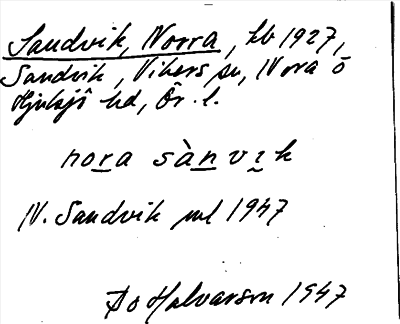 Sandvik, Norra, hb 1927,
Sandvik, Vikers sn, Nora o
Hjulsjö hd, Ör. l.
nora sànvɪk
N. Sandvik ml 1947
Do Halvarson 1947